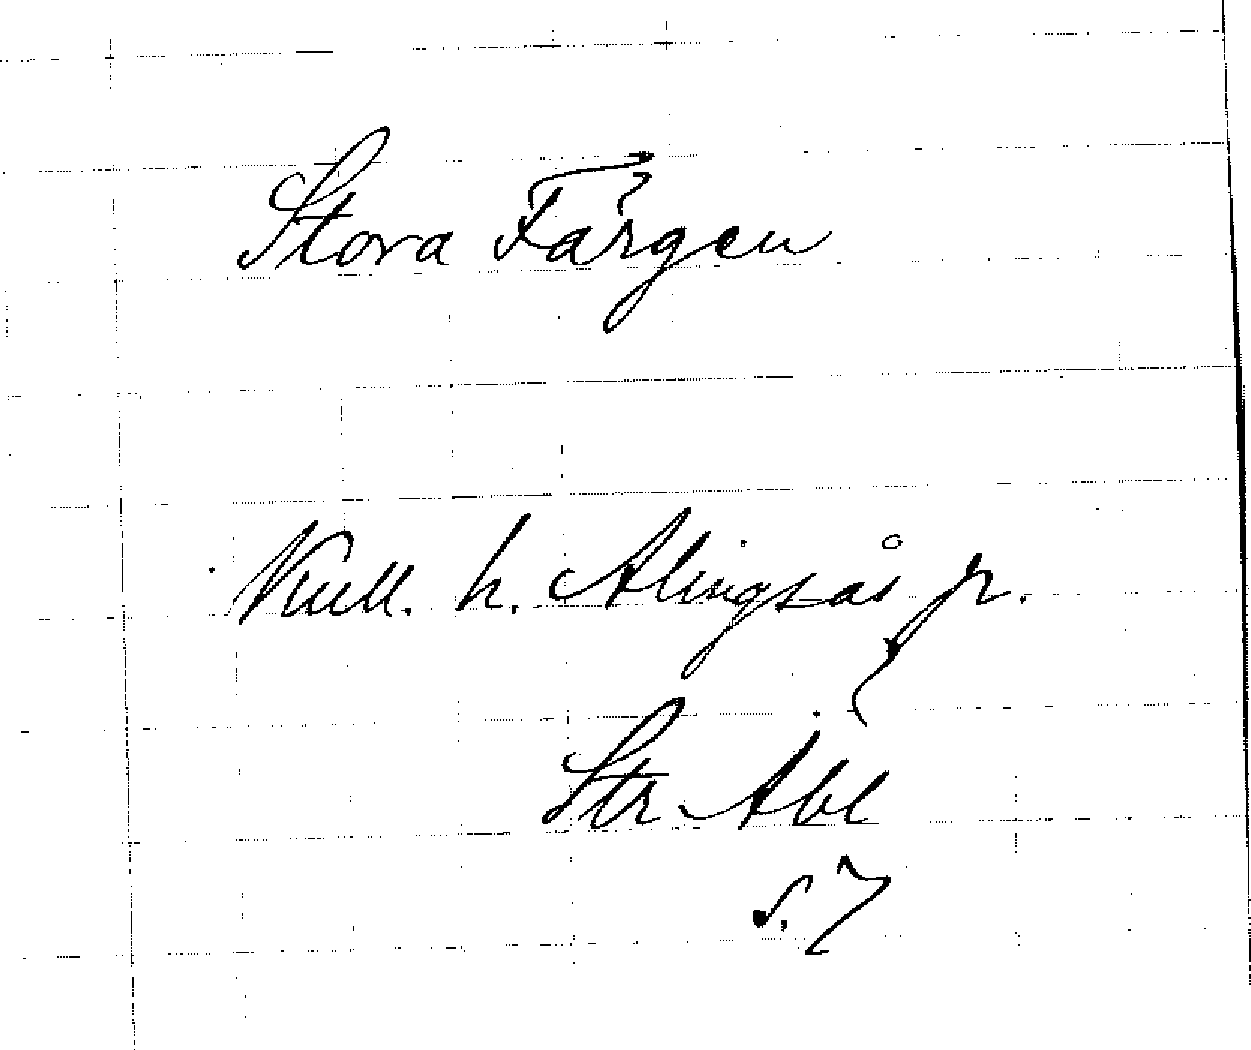 Stora Färgen
Kull. h. Alingsås jr.
Str. Äbl
s. 7